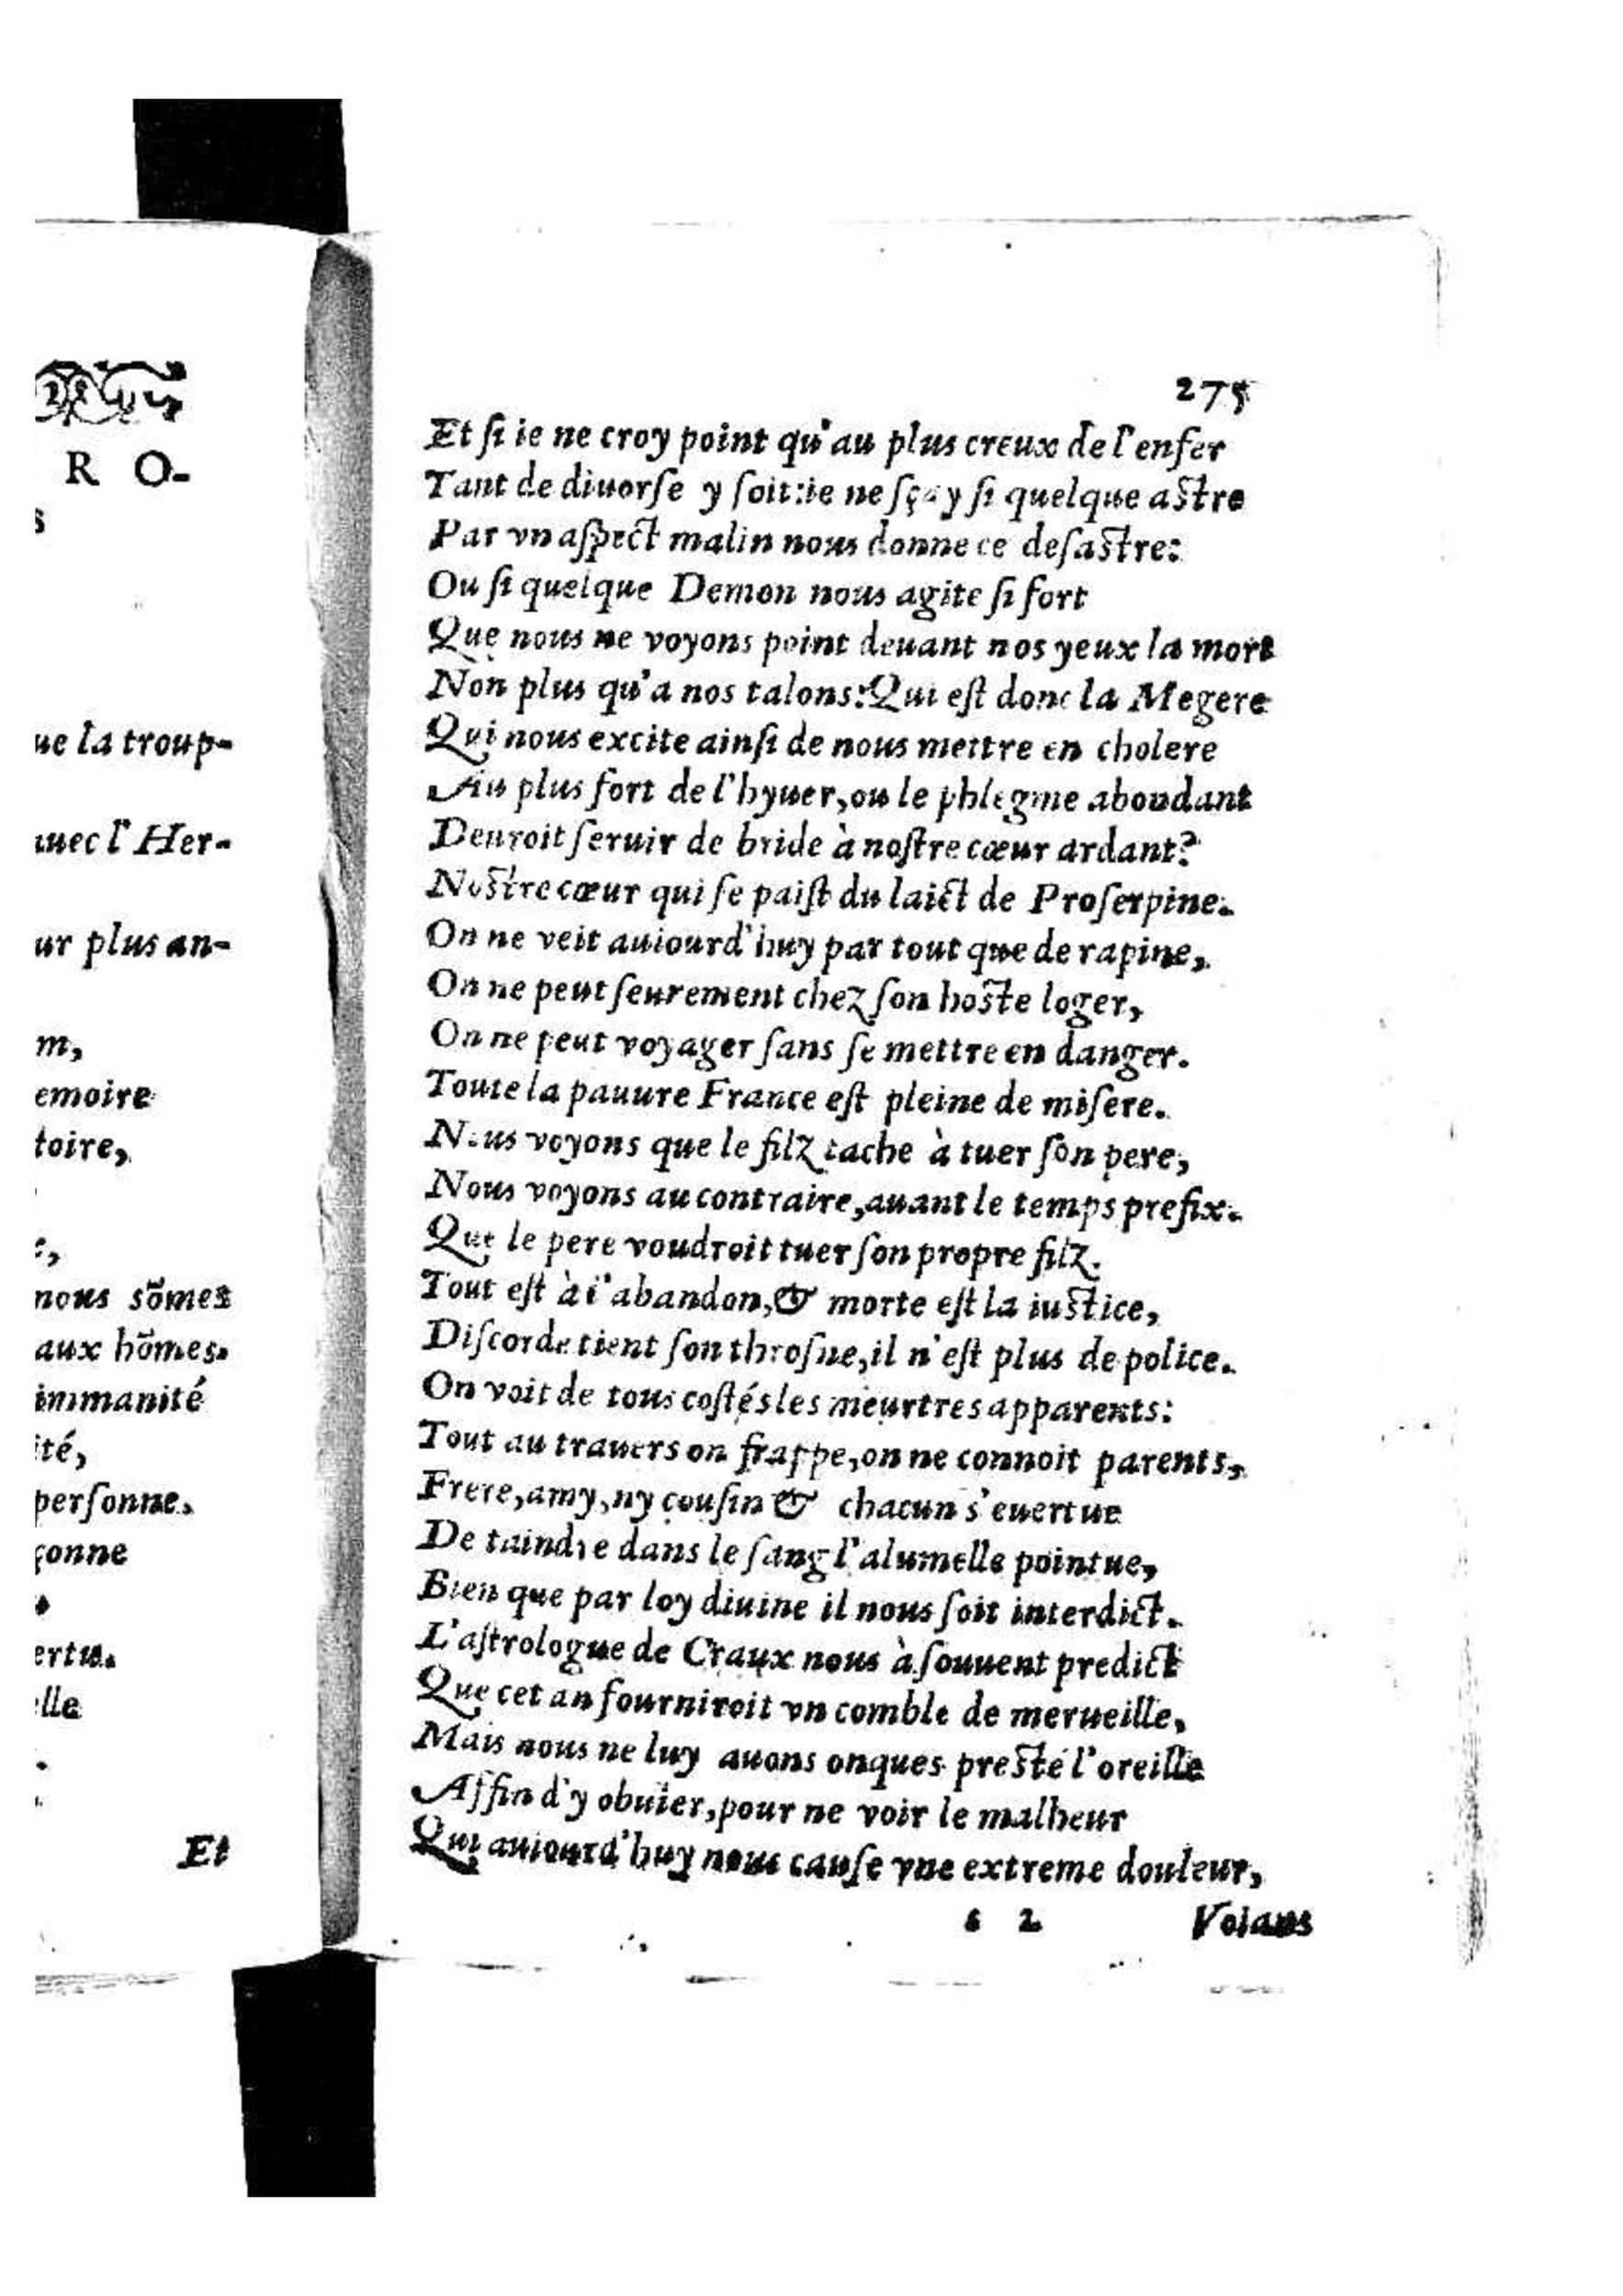 R O-
s
ue la troup-
auec l'Her-
ur plus an-
m,
emoire
toire,
nous sõmes
aux hõmes.
immanité
ité,
perſonne.
çonne
ertu.
elle
Et
275
Et ſi ie ne croy point qu'au plus creux de l'enfer
Tant de diuorſe y ſoit:ie ne ſçay ſi quelque aſtre
Par vn aſpect malin nous donne ce deſaſtre:
Ou ſi quelque Demon nous agite ſi fort
Que nous ne voyons point deuant nos yeux la mort
Non plus qu'a nos talons:Qui eſt donc la Megere
Qui nous excite ainſi de nous mettre en cholere
Au plus fort de l'hyuer,ou le phlegme abondant
Deuroit ſeruir de bride à noſtre cœur ardant?
Noſtre cœur qui ſe paiſt du laict de Proſerpine.
On ne veit auiourd'huy par tout que de rapine,
On ne peut ſeurement chez ſon hoſte loger,
On ne peut voyager ſans ſe mettre en danger.
Toute la pauure France eſt pleine de miſere.
Nous voyons que le filz tache à tuer ſon pere,
Nous voyons au contraire,auant le temps prefix.
Que le pere voudroit tuer ſon propre filz.
Tout eſt à l'abandon,& morte eſt la iuſtice,
Diſcorde tient ſon throſne,il n'eſt plus de police.
On voit de tous coſtés les meurtres apparents:
Tout au trauers on frappe,on ne connoit parents,
Frere,amy,ny couſin & chacun s'euertue
De taindre dans le ſang l'alumelle pointue,
Bien que par loy diuine il nous ſoit interdict.
L'aſtrologue de Craux nous à ſouuent predict
Que cet an fourniroit vn comble de merueille,
Mais nous ne luy auons onques preſté l'oreille
Affin d'y obuier,pour ne voir le malheur
Qui auiourd'huy nous cauſe vne extreme douleur,
2 Voians